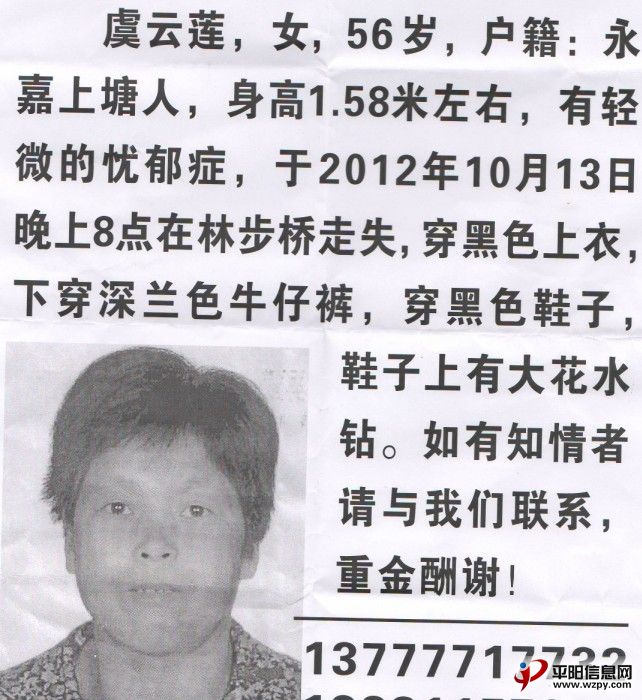 虞云莲，女，56岁，户籍：永
嘉上塘人，身高1.58米左右，有轻
微的忧郁症，于2012年10月13日
晚上8点在林步桥走失,穿黑色上衣，
下穿深兰色牛仔裤，穿黑色鞋子，
鞋子上有大花水
钻。如有知情者
请与我们联系，
重金酬谢！
13777717732
平阳信息网
www.wzpy.com